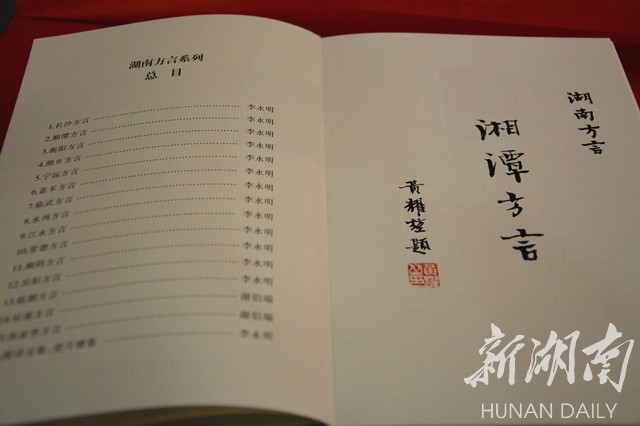 湖南方言系列
总 目
1.长沙方言 李永明
2.湘潭方言 李永明
3.衡阳方言 李永明
4.湘乡方言 李永明
5.宁远方言 李永明
6.嘉禾方言 李永明
7.临武方言 李永明
8.永州方言 李永明
9.江永方言 李永明
10.常德方言 李永明
11.湘阴方言 李永明
12.岳阳方言 李永明
13.临湘方言 谢伯端
14.辰溪方言 谢伯端
方言 李永明
湖南方言
湘潭方言
黄耀堃题
新湖南
HUNAN DAILY